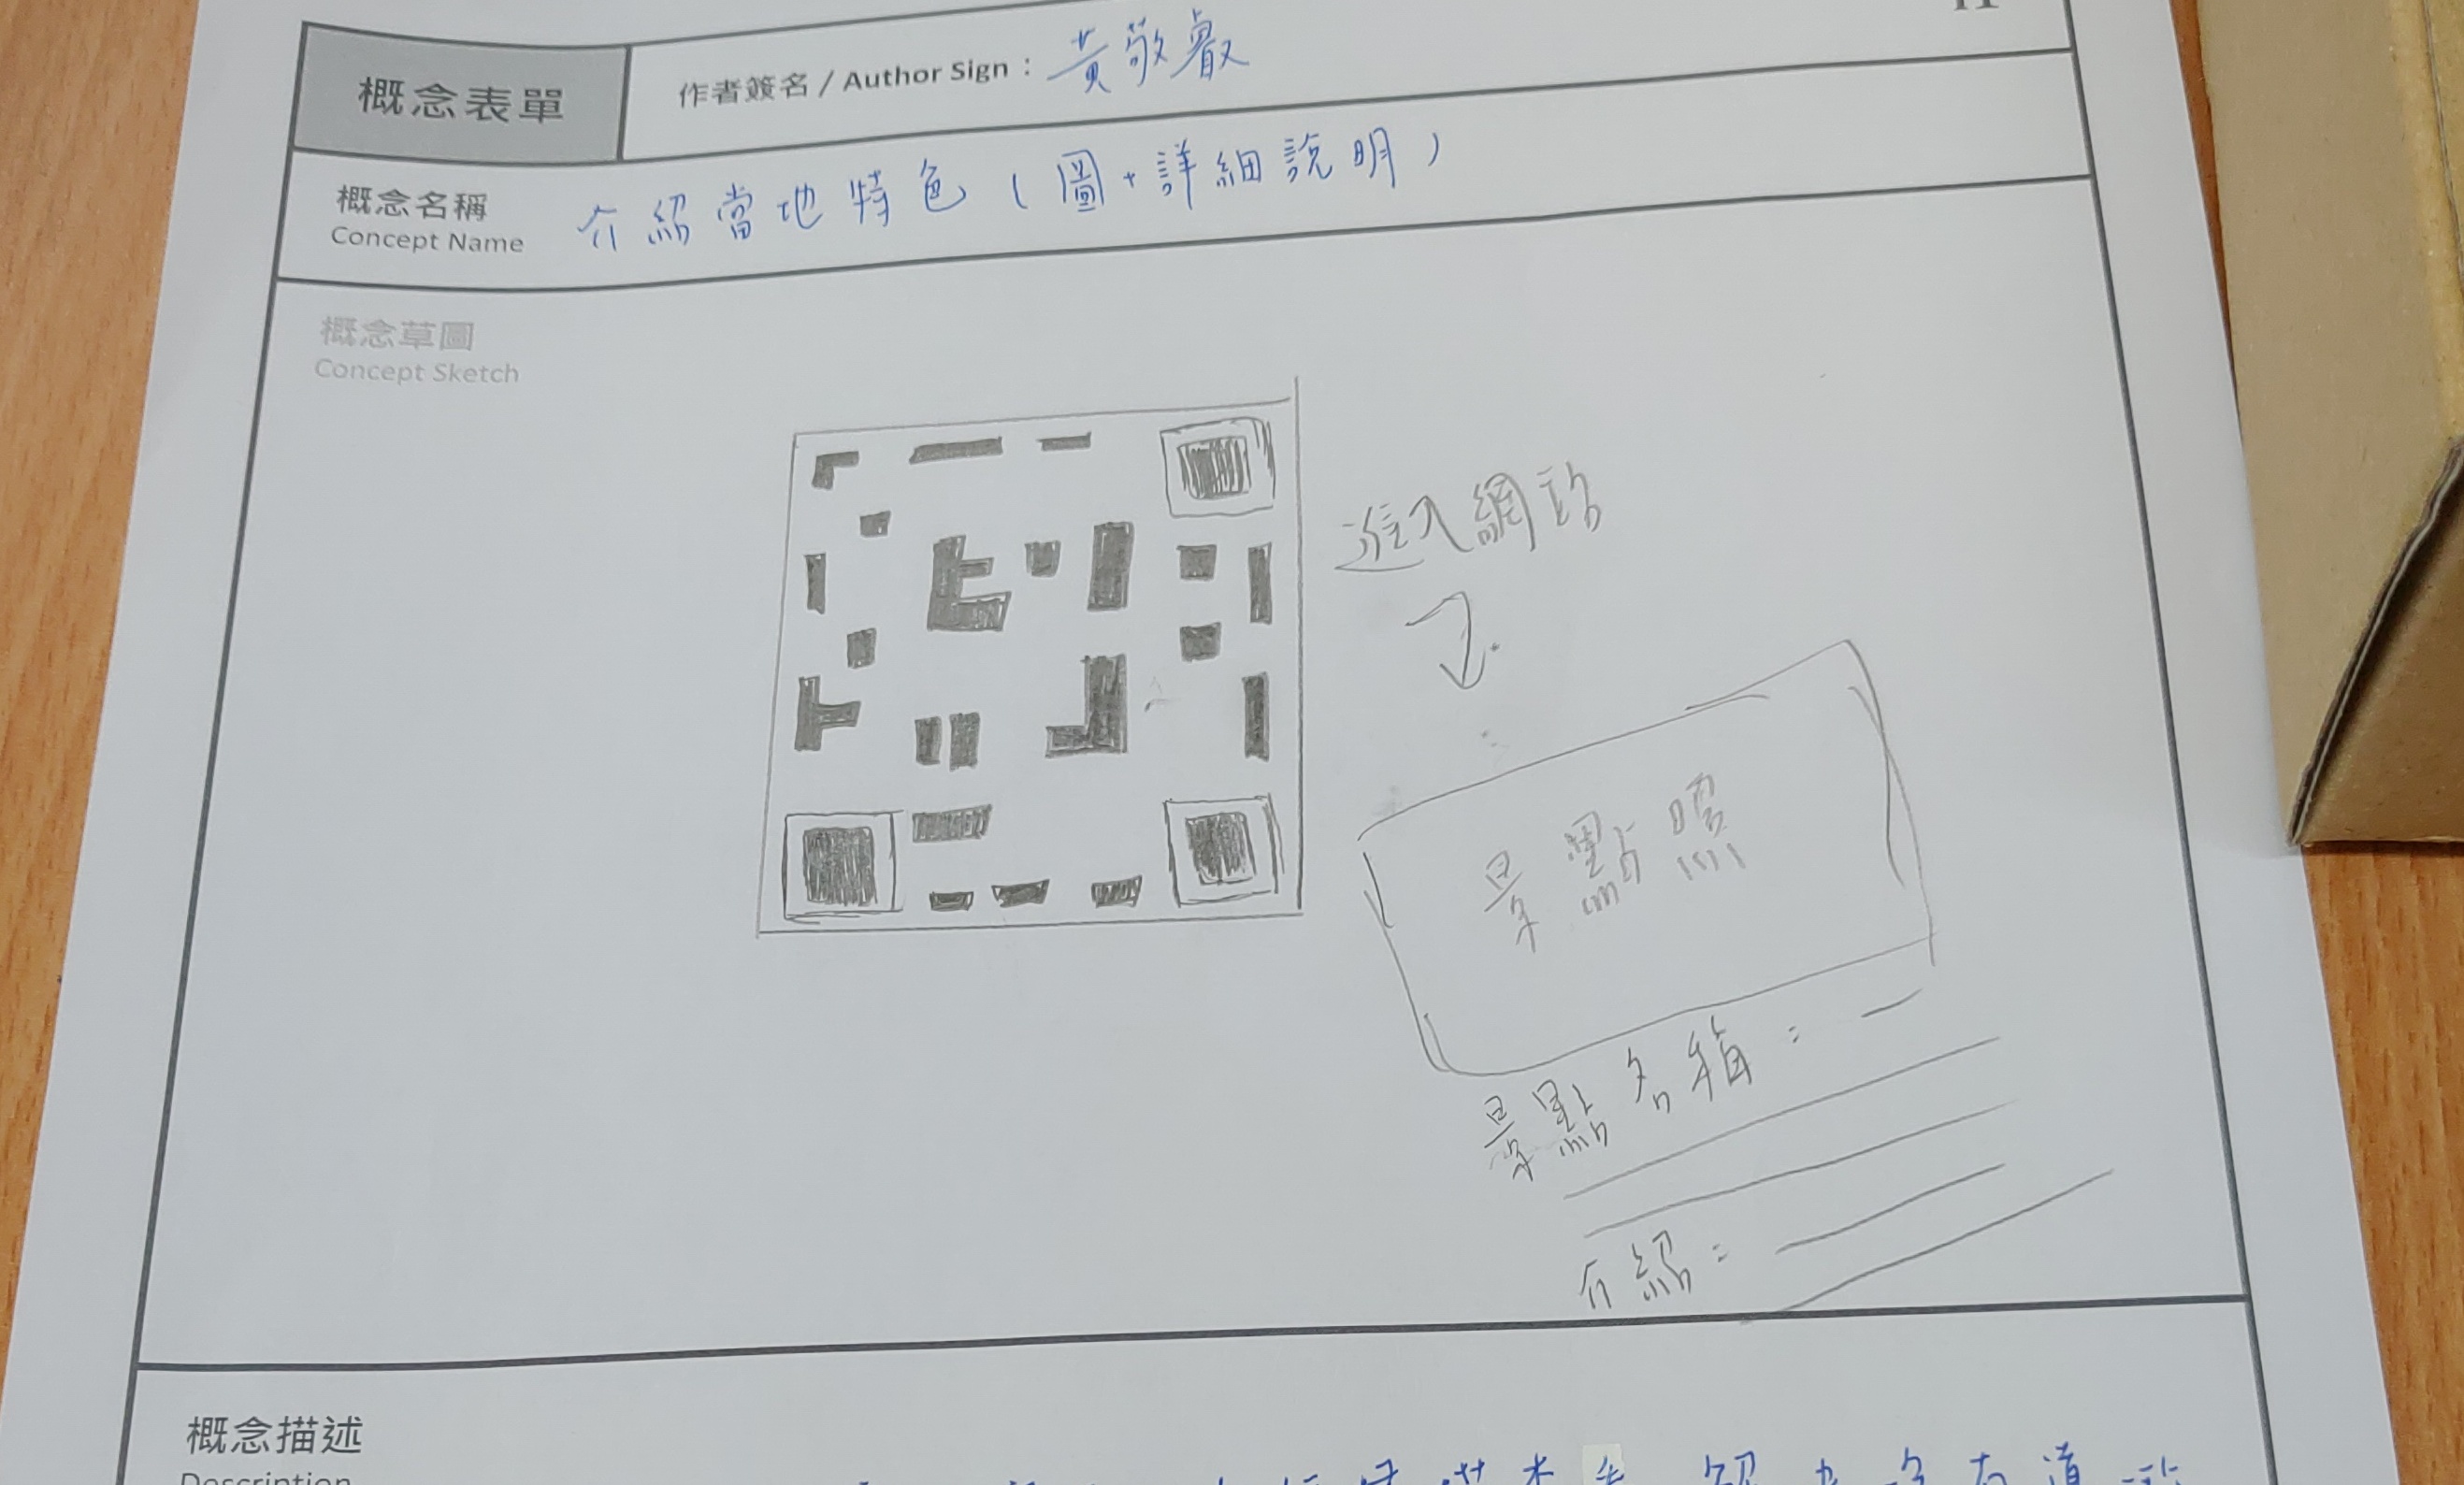 概念表單
作者簽名 / Author Sign : 黃敬叡
概念名稱
Concept Name
介紹當地特色(圖+詳細說明)
概念草圖
Concept Sketch
進入網站
景點照
景點名稱:
介紹:
概念描述
Description